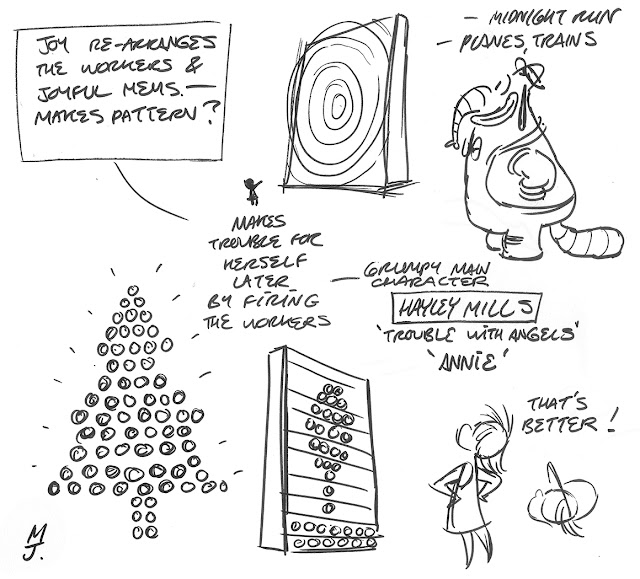 JOY RE-ARRANGES
THE WORKERS &
JOYFUL MEMS. —
MAKES PATTERN?
- MIDNIGHT RUN
- PLANES, TRAINS
MAKES
TROUBLE FOR
HERSELF
LATER
BY FIRING
THE WORKERS
— GRUMPY MAN
CHARACTER
HAYLEY MILLS
'TROUBLE WITH ANGELS'
'ANNIE'
THAT'S
BETTER!
MJ.